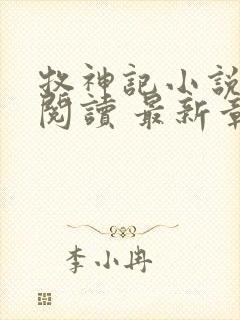 牧神記小說
閱讀 最新章
李小冉